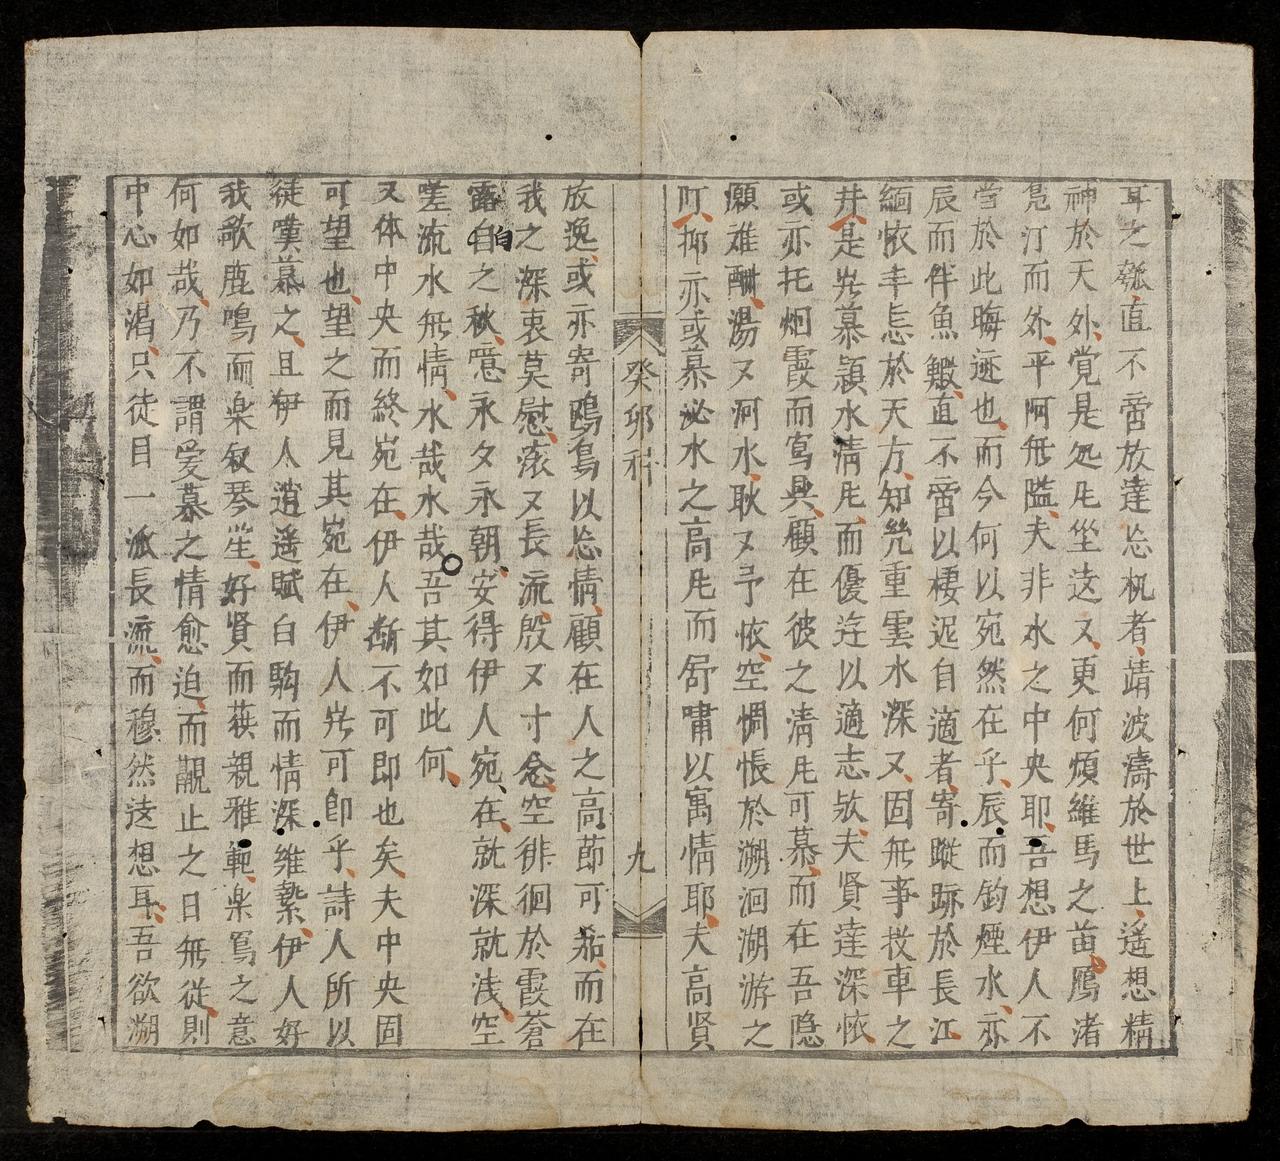 耳之瓢直不啻放達忘机者靖波濤於世上遙想精
神於天外覚是処凡坐这又更何煩維馬之苗鴈渚
凫汀而外平阿無隘夫非水之中央耶吾想伊人不
啻於此晦迹也而今何以宛然在乎辰而釣煙水亦
辰而伴魚鰕直不啻以棲迟自適者寄蹤跡於長江
緬懷丰态於天方知幾重雲水深又固無事投車之
井是豈慕潁水清凡而優遊以適志欤夫賢達深懷
或亦托烟霞而寫興顧在彼之清凡可慕而在吾隐
願难酬湯又河水耿又予懷空惆悵於溯洄湖游之
叮抑亦或慕泌水之高凡而舒嘯以寓情耶夫高賢
癸卯科
九
放逸或亦寄鴎鳧以忘情顧在人之高節可茹而在
我之深衷莫慰滚又長流殷又寸念空徘徊於霞蒼
露白之秋噫永夕永朝安得伊人宛在就深就浅空
嗟流水無情水哉水哉吾其如此何
又体中央而終宛在伊人斷不可即也矣夫中央固
可望也望之而見其宛在伊人豈可即乎詩人所以
徒嘆慕之且伊人逍遥賦白駒而情深維縶伊人好
我歌鹿鳴而楽叙琴笙好賢而蕻親雅範楽篤之意
何如哉乃不謂爱慕之情愈迫而覯止之日無從則
中心如渴只徒目一派長流而穆然这想耳吾欲溯